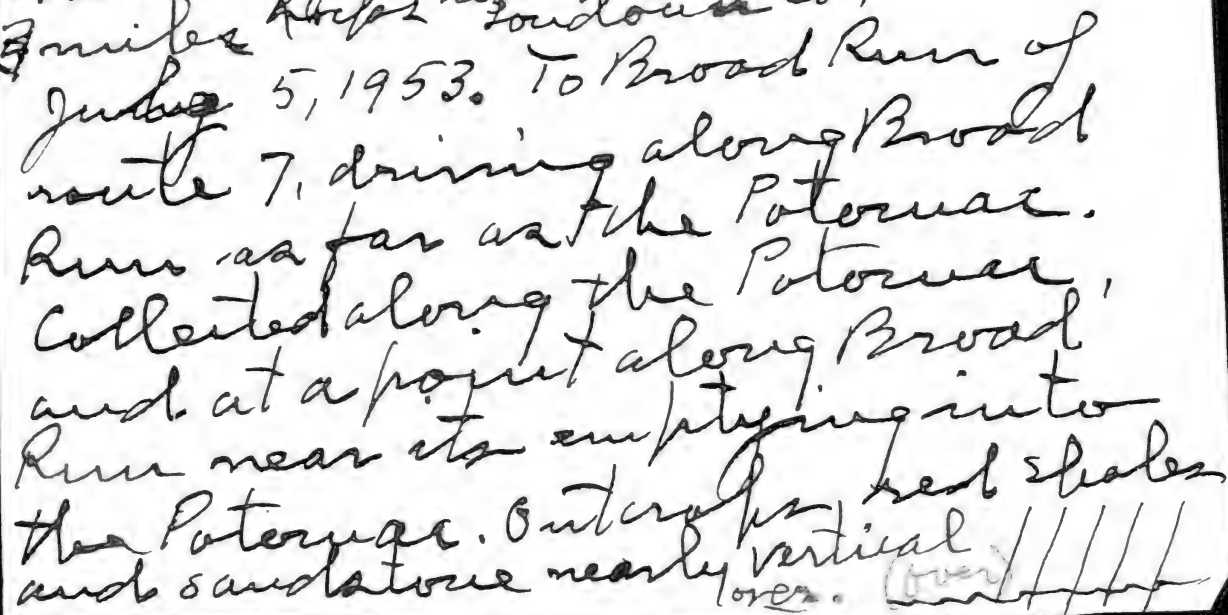 miles Loudoun Co.
July 5, 1953. To Broad Run of
route 7, driving along Broad
Run as far as the Potomac.
Collected along the Potomac,
and at a point along Broad
Run near its emptying into
the Potomac. Outcrops, red shales
and sandstone nearly vertical (over)
over.